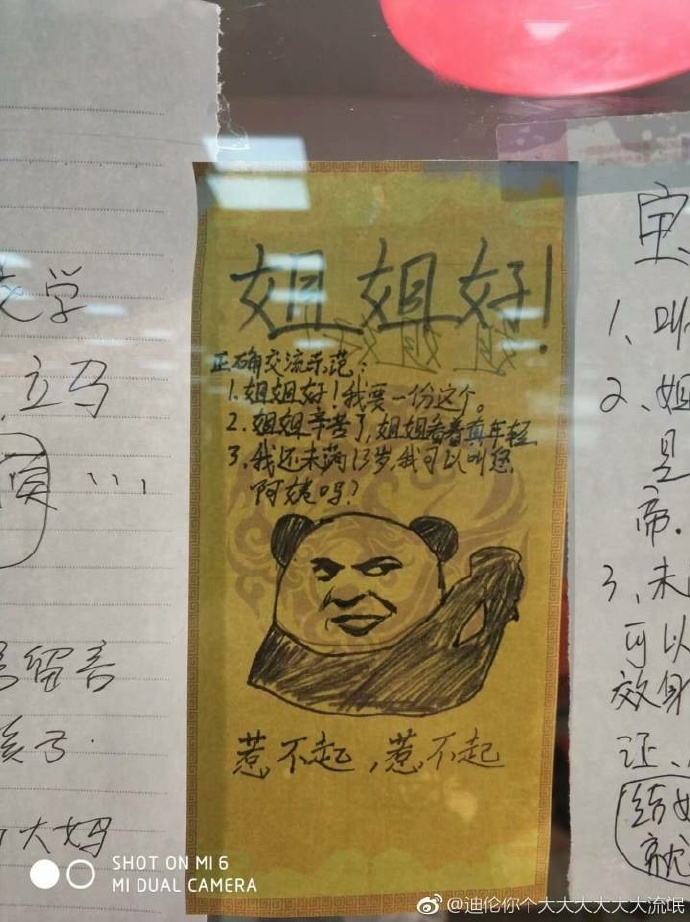 学
立马
...
留言
孩子.
大妈
姐姐好!
正确交流示范:
1.姐姐好!我要一份这个。
2.姐姐辛苦了,姐姐看着真年轻
3.我还未满13岁,我可以叫您
阿姨吗?
惹不起,惹不起
1、叫
2、姐
是
帝.
3、未
可以
效身
证、
结婚
就
SHOT ON MI 6
MI DUAL CAMERA
@迪伦你个大大大大大大流氓